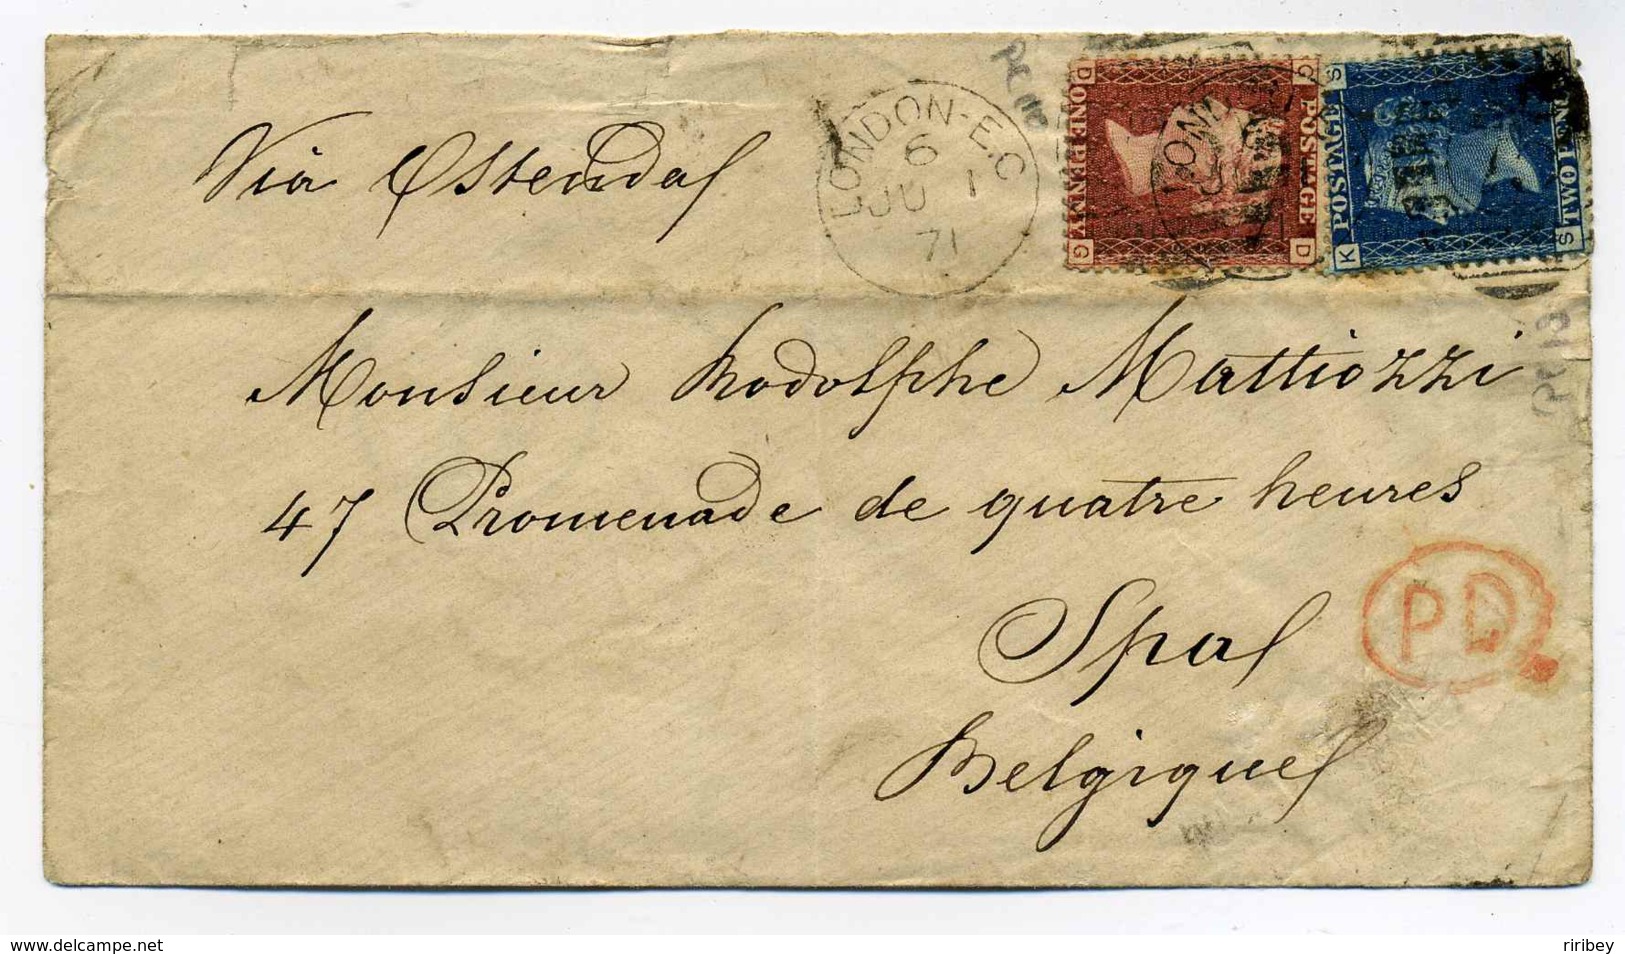 Via Ostende
LONDON-E.C
6
JU 1
71
D G
ONE PENNY
POSTAGE
G D
S K
POSTAGE
TWO PENCE
K S
LOND
JU
PL 13
Monsieur Rodolphe Mattiozzi
47 Promenade de quatre heures
Spa
Belgique
PD
www.delcampe.net
riribey